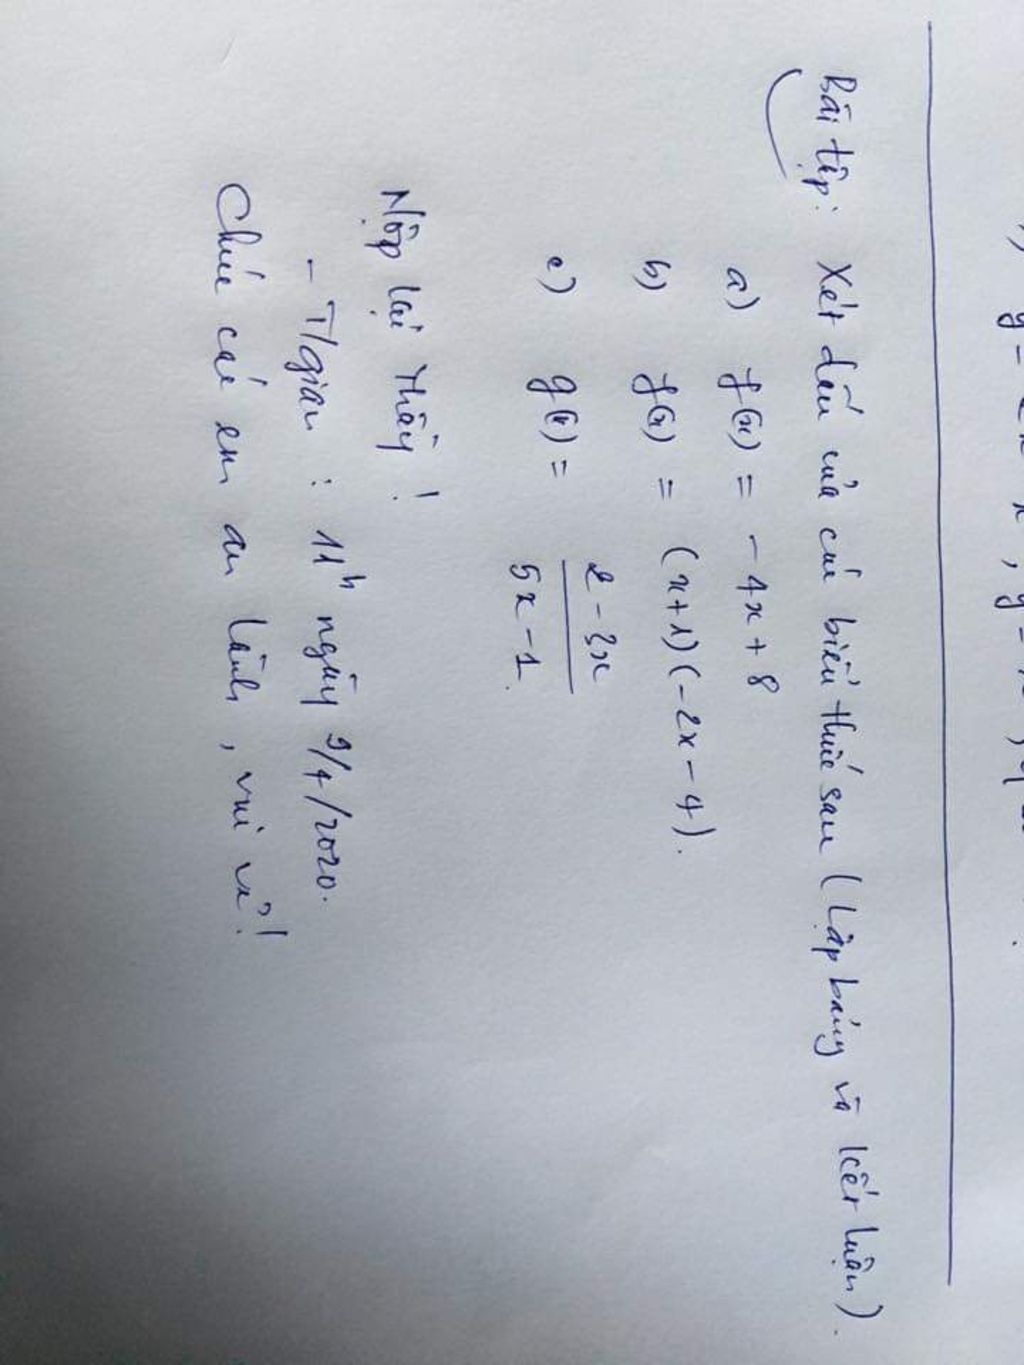 Bài tập: Xét dấu của các biểu thức sau (Lập bảng và kết luận).
a) f(x) = -4x + 8
b) f(x) = (x+1)(-2x-4).
c) g(x) = \frac{2-3x}{5x-1}.
Nộp lại Thầy!
- T/gian : 11h ngày 9/4/2020.
Chúc các em an lành, vui vẻ!